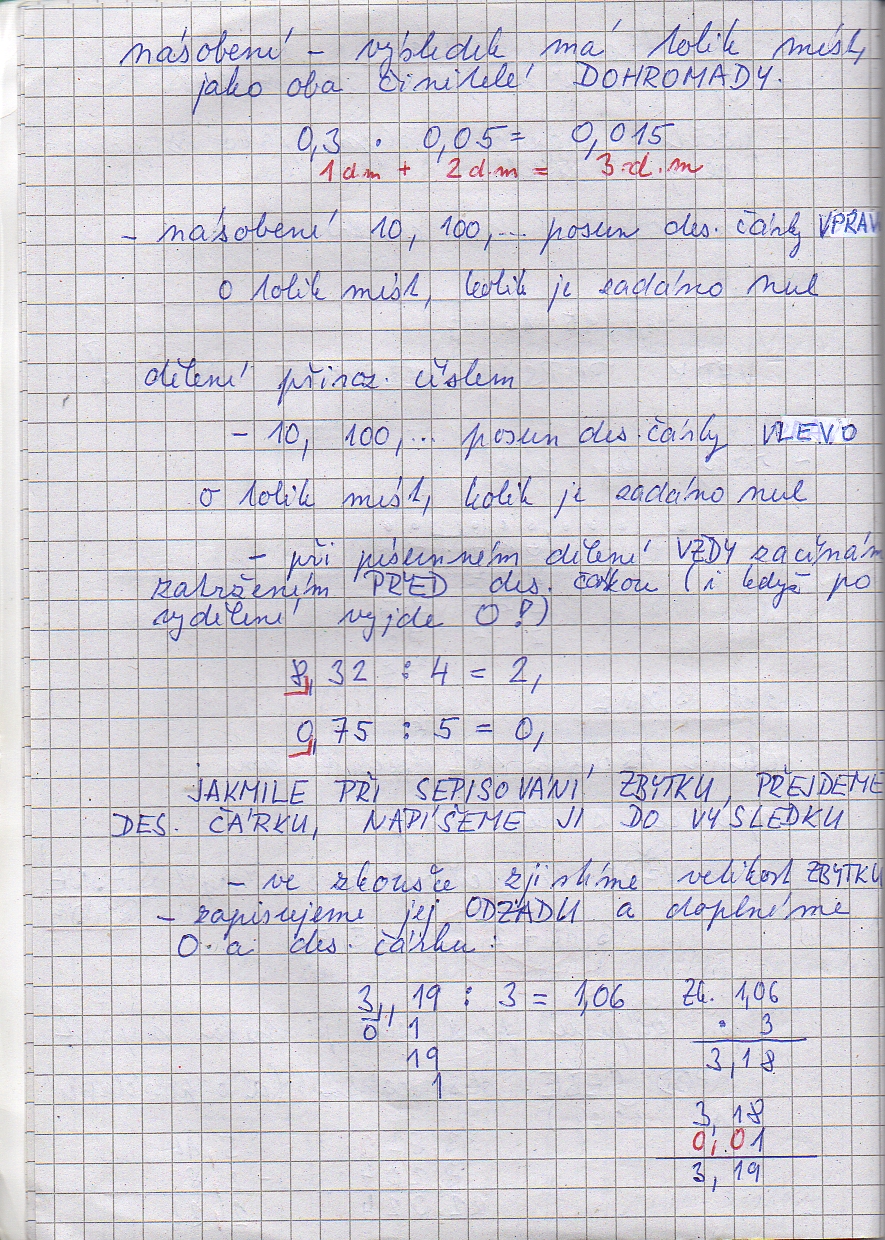 násobení - výsledek má tolik míst,
jako oba činitelé DOHROMADY.
0,3 · 0,05 = 0,015
1 d.m + 2 d.m = 3.d.m
- násobení 10, 100,... posun des. čárky VPRAV
o tolik míst, kolik je zadáno nul
dělení přiroz. číslem
- 10, 100,... posun des. čárky VLEVO
o tolik míst, kolik je zadáno nul
- při písemném dělení VŽDY začínám
zatržením PŘED des. čárkou (i když po
vydělení vyjde 0!)
8,32 : 4 = 2,
0,75 : 5 = 0,
JAKMILE PŘI SEPISOVÁNÍ ZBYTKU PŘEJDEME
DES. ČÁRKU, NAPÍŠEME JI DO VÝSLEDKU
- ve zkoušce zjistíme velikost ZBYTKU
- zapisujeme jej ODZADU a doplníme
0 a des. čárku:
3,19 : 3 = 1,06 Zk. 1,06
0 1 · 3
19 3,18
1
3,18
0,01
3,19